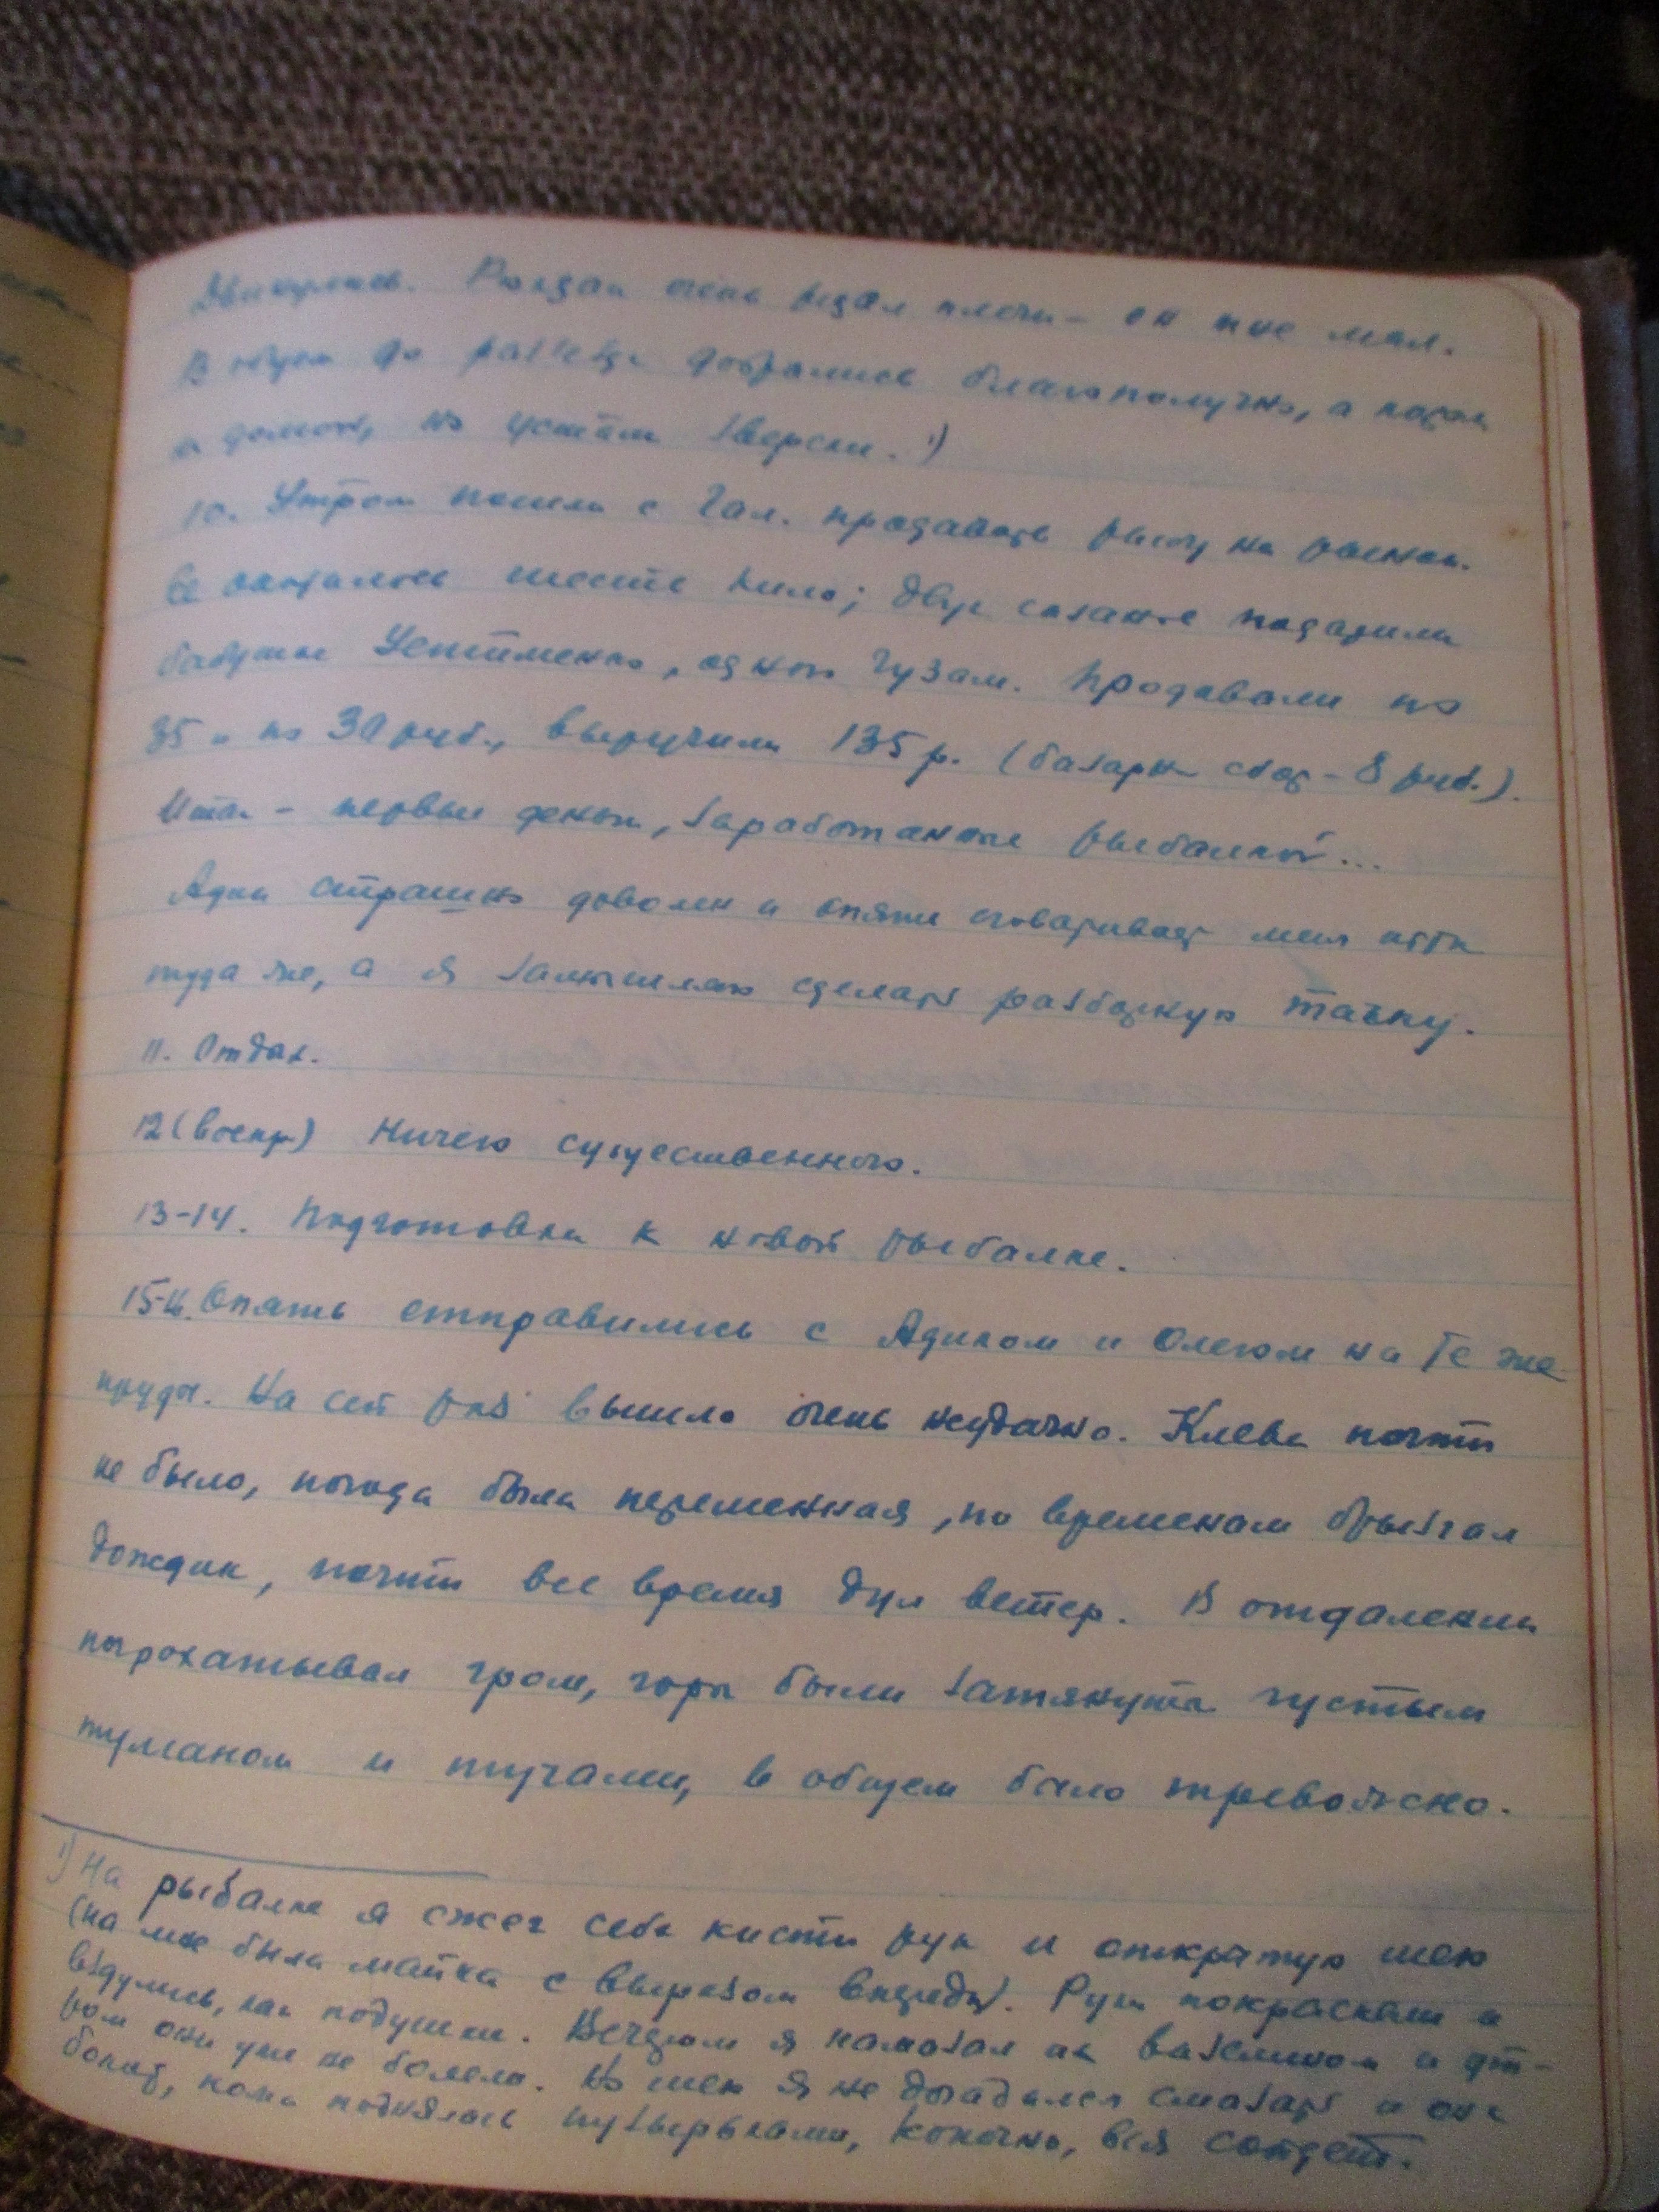 двинулись. Рюкзак очень резал плечи – он мне мал.
В общем до разъезда добрались благополучно, а потом
и домой, но устали зверски. ¹)
10. Утром пошли с Гал. продавать рыбу на рынок.
Ее оказалось шесть кило; двух сазанов подарили
бабушке Устименко, одного Гузам. Продавали по
35 и по 30 руб., выручили 135 р. (базарн сбор – 8 руб.).
Итак – первые деньги, заработанные рыбалкой...
Адик страшно доволен и опять сговаривает меня итти
туда же, а я замышляю сделать разборную тачку.
11. Отдых.
12 (воскр.) Ничего существенного.
13-14. Подготовка к новой рыбалке.
15-16. Опять отправились с Адиком и Олегом на те же
пруды. На сей раз вышло очень неудачно. Клева почти
не было, погода была переменная, по временам брызгал
дождик, почти все время дул ветер. В отдалении
погрохатывал гром, горы были затянуты густым
туманом и тучами, в общем было тревожно.
¹) На рыбалке я сжег себе кисти рук и открытую шею
(на мне была майка с вырезом впереди). Руки покраснели и
вздулись, как подушки. Вечером я намазал их вазелином и ут-
ром они уже не болели. Но шею я не догадался смазать и она
болит, кожа поднялась пузырьками, конечно, вся сойдет.